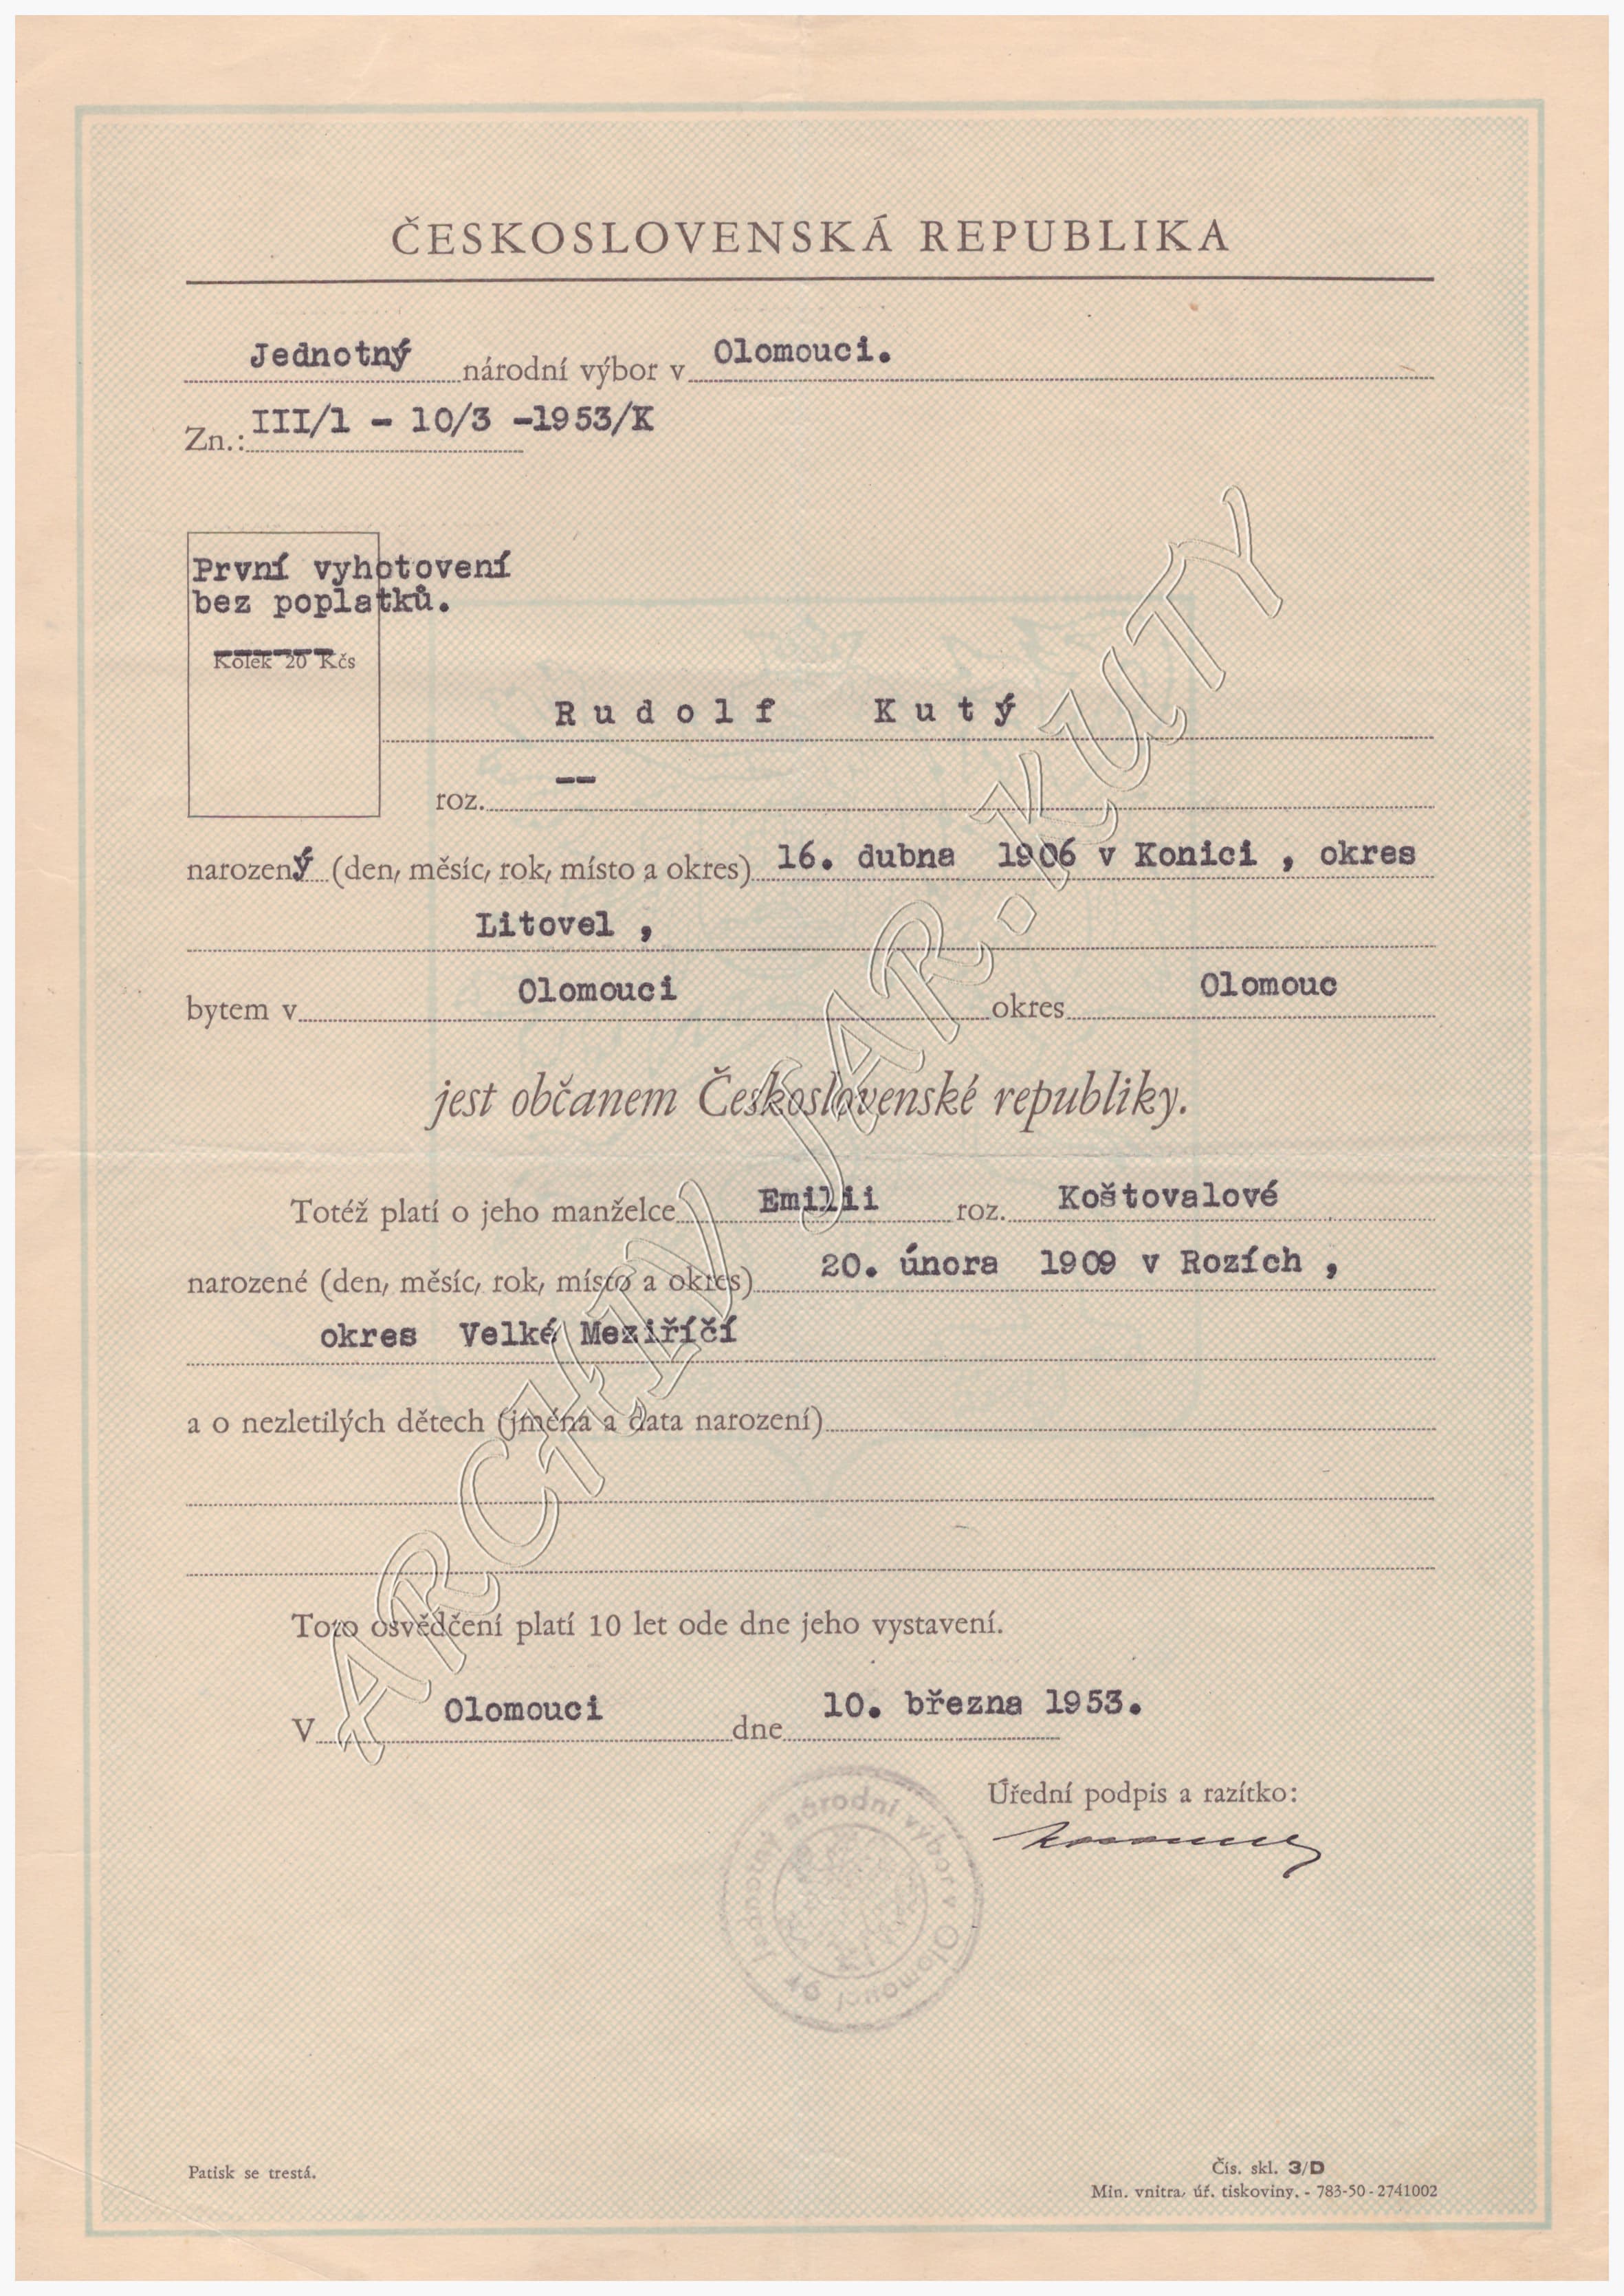 ČESKOSLOVENSKÁ REPUBLIKA
Jednotný národní výbor v Olomouci.
Zn.: III/1 - 10/3 -1953/K
První vyhotovení
bez poplatků.
Kolek 20 Kčs
Rudolf Kutý
roz. --
narozený (den, měsíc, rok, místo a okres) 16. dubna 1906 v Konici , okres
Litovel ,
bytem v Olomouci okres Olomouc
jest občanem Československé republiky.
Totéž platí o jeho manželce Emilii roz. Koštovalové
narozené (den, měsíc, rok, místo a okres) 20. února 1909 v Rozích ,
okres Velké Meziříčí
a o nezletilých dětech (jména a data narození)
Toto osvědčení platí 10 let ode dne jeho vystavení.
V Olomouci dne 10. března 1953.
Úřední podpis a razítko:
Jednotný národní výbor v Olomouci
Patisk se trestá.
Čís. skl. 3/D
Min. vnitra, úř. tiskoviny. - 783-50-2741002
ARCHIV JAR.KUTY